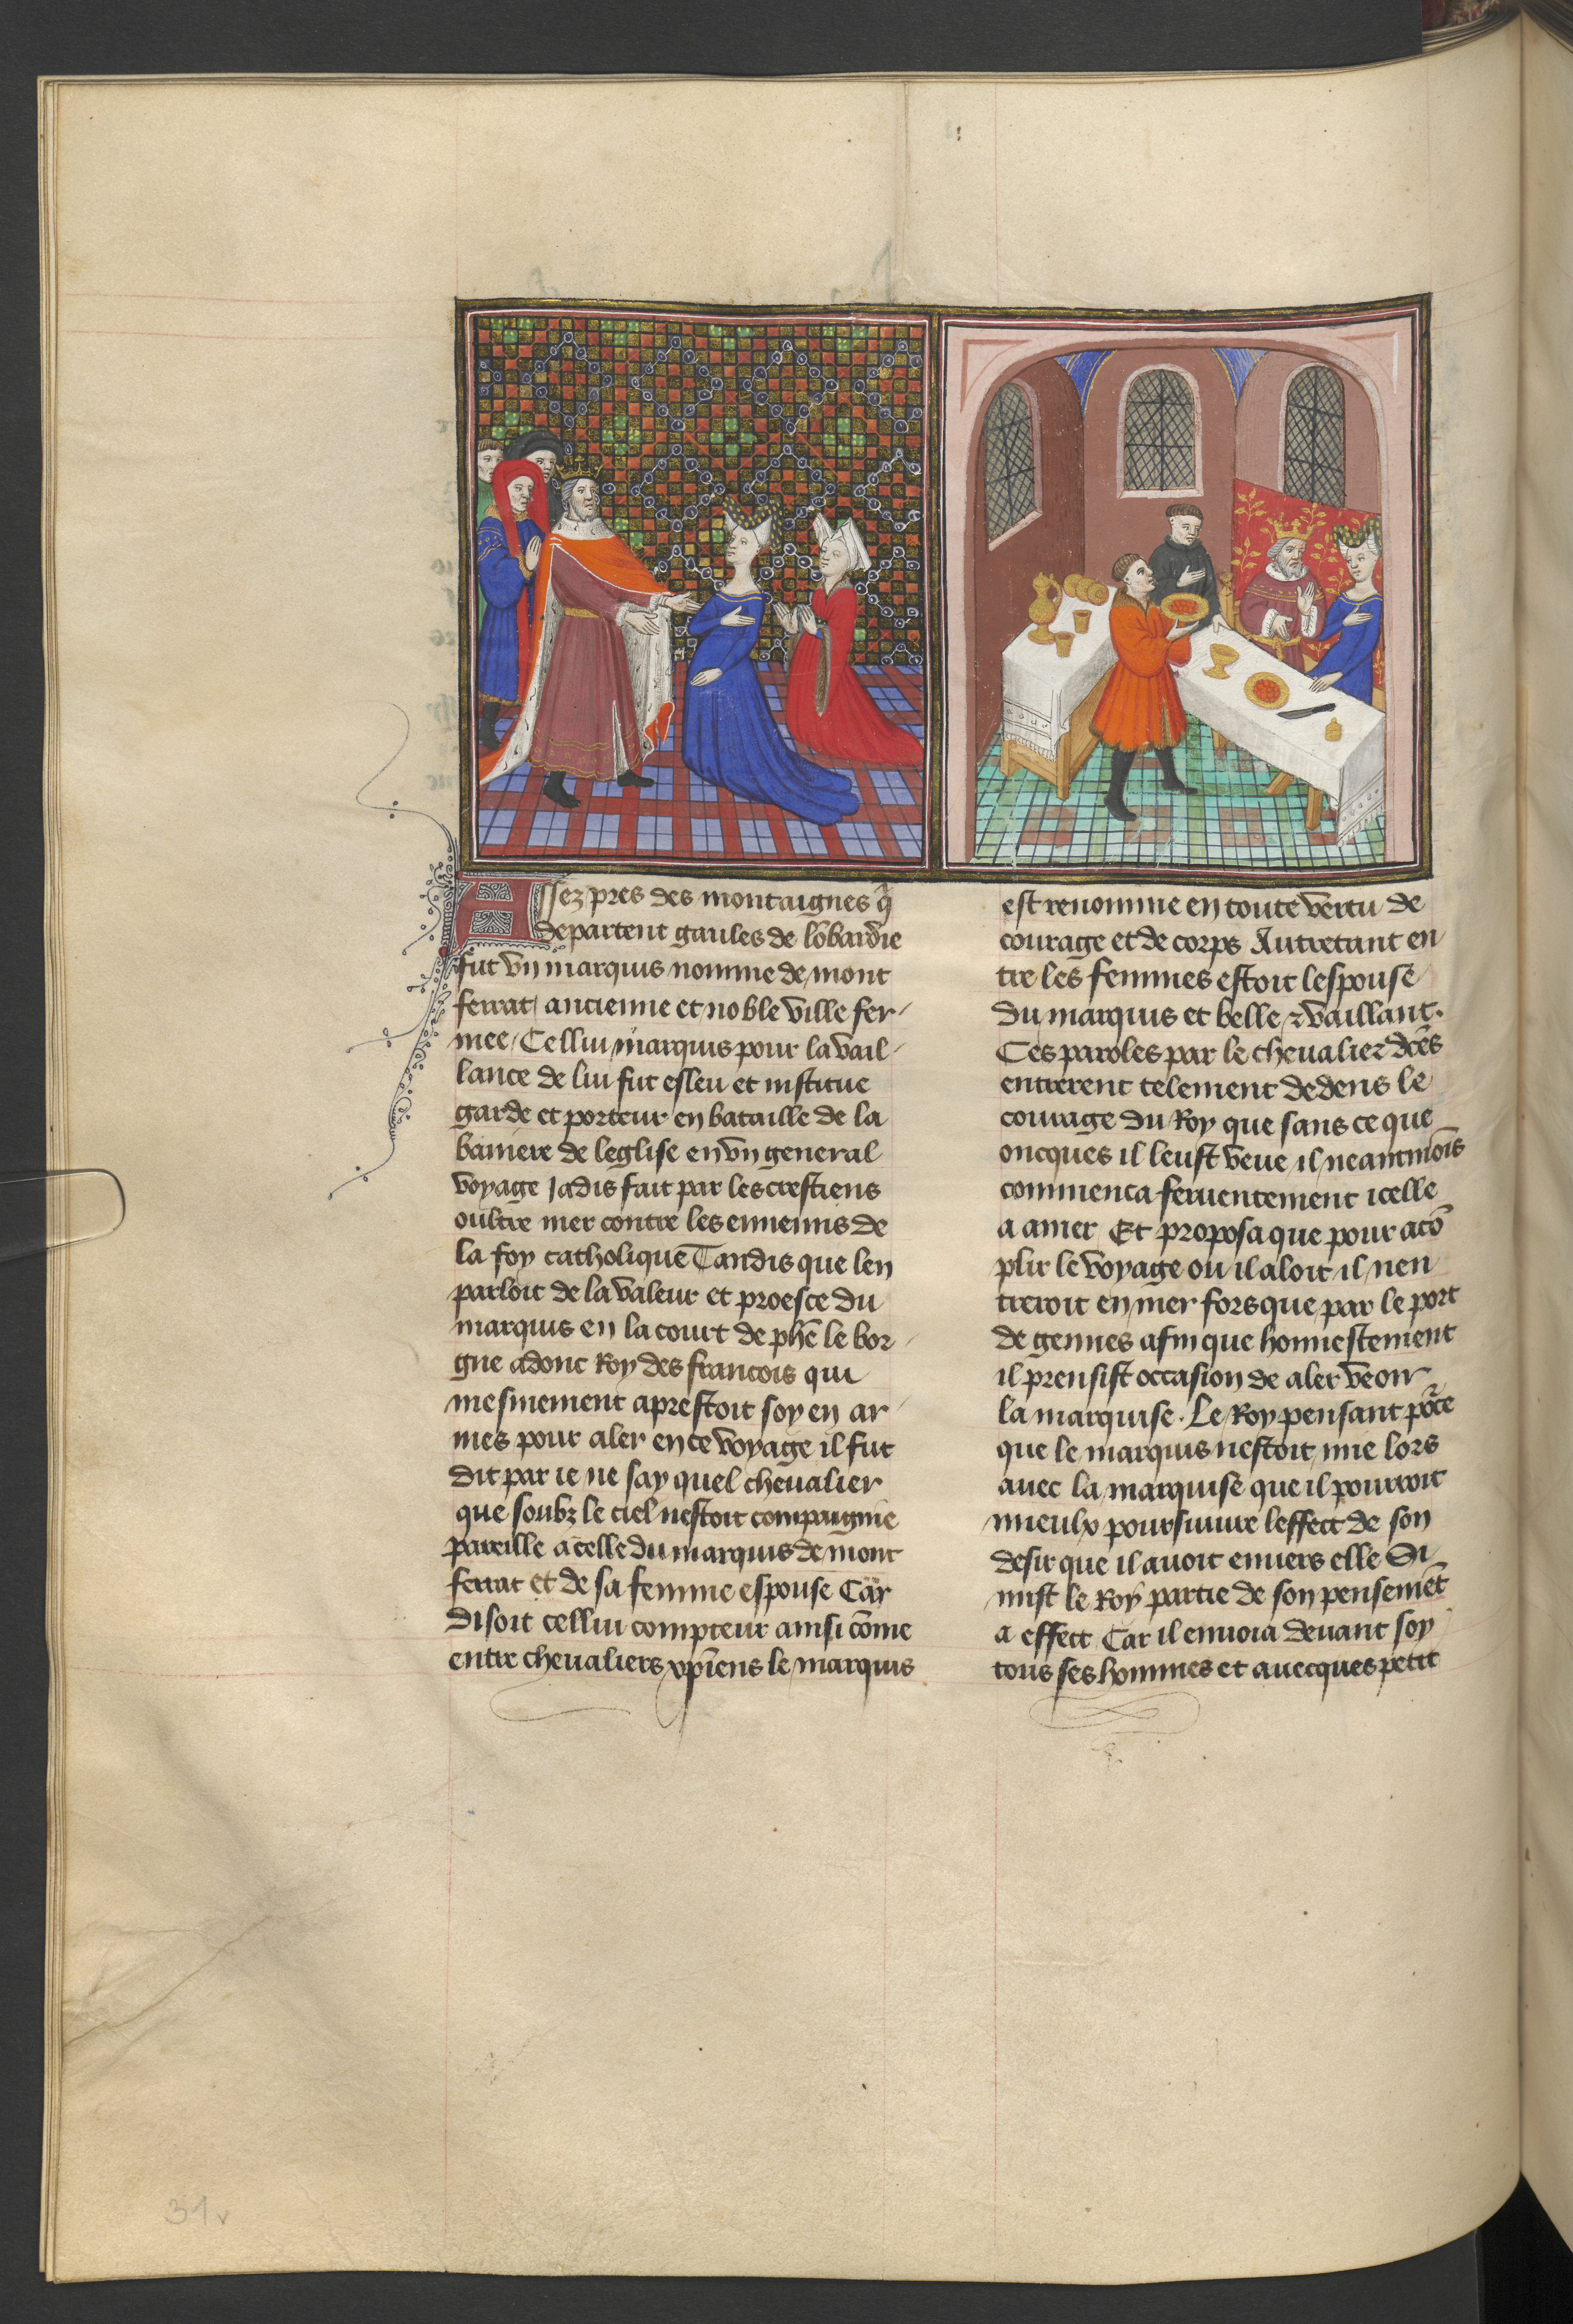 Assez pres des montaignes q̄
departent gaules de lōbardie
fut vn marquis nomme de mont
ferrat ancienne et noble ville fer-
mee. Cellui marquis pour la vail-
lance de lui fut esleu et institue
garde et porteur en bataille de la
baniere de leglise en vn general
voyage Jadis fait par les crestiens
oultre mer contre les ennemis de
la foy catholique Tandis que len
parloit de la valeur et proesce du
marquis en la court de phē le bor-
gne adonc Roy des francois qui
mesmement aprestoit soy en ar-
mes pour aler en ce voyage il fut
dit par ie ne say quel cheualier
que soubz le ciel nestoit compaignie
pareille a celle du marquis de mont
ferrat et de sa femme espouse Car
disoit cellui compteur ainsi cōme
entre cheualiers xp̄iens le marquis
est renomme en toute vertu de
courage et de corps Autretant en
tre les femmes estoit lespouse
du marquis et belle ⁊ vaillant.
Ces paroles par le cheualier dc̄es
entrerent telement dedens le
courage du Roy que sans ce que
oncques il leust veue il neantmoīs
commenca feruentement icelle
a amer Et proposa que pour acō
plir le voyage ou il aloit il nen
treroit en mer fors que par le port
de gennes afin que honnestement
il prensist occasion de aler veoir
la marquise. Le Roy pensant poᷣce
que le marquis nestoit mie lors
auec la marquise que il pourroit
mieulx poursuiure leffect de son
desir que il auoit enuers elle Si
mist le Roy partie de son pensemēt
a effect Car il enuoia deuant soy
tous ses hommes et auecques petit
31v